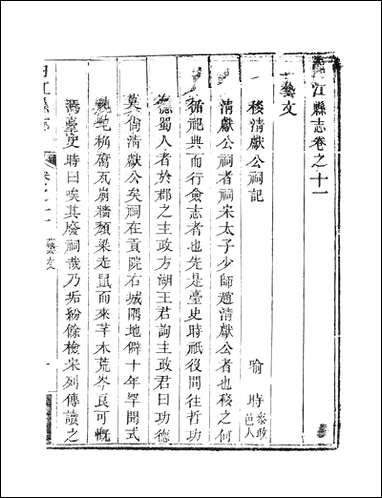 江縣志卷之十一
藝文
移清獻公祠記
喻時 參政 邑人
清獻公祠者祠宋太子少師趙清獻公者也移之何
循祀典而行僉志者也先是臺史時祇役問往哲功
德蜀人者於郡之主政方湖王君詢主政君曰功德
莫尚清獻公矣祠在貢院右城隅地僻十年罕聞式
桷腐瓦崩牆頹梁走鼠而來芊木荒岑良可慨
焉臺史時曰唉其廢祠哉乃垢紛餘檢宋列傳讀之
藝文